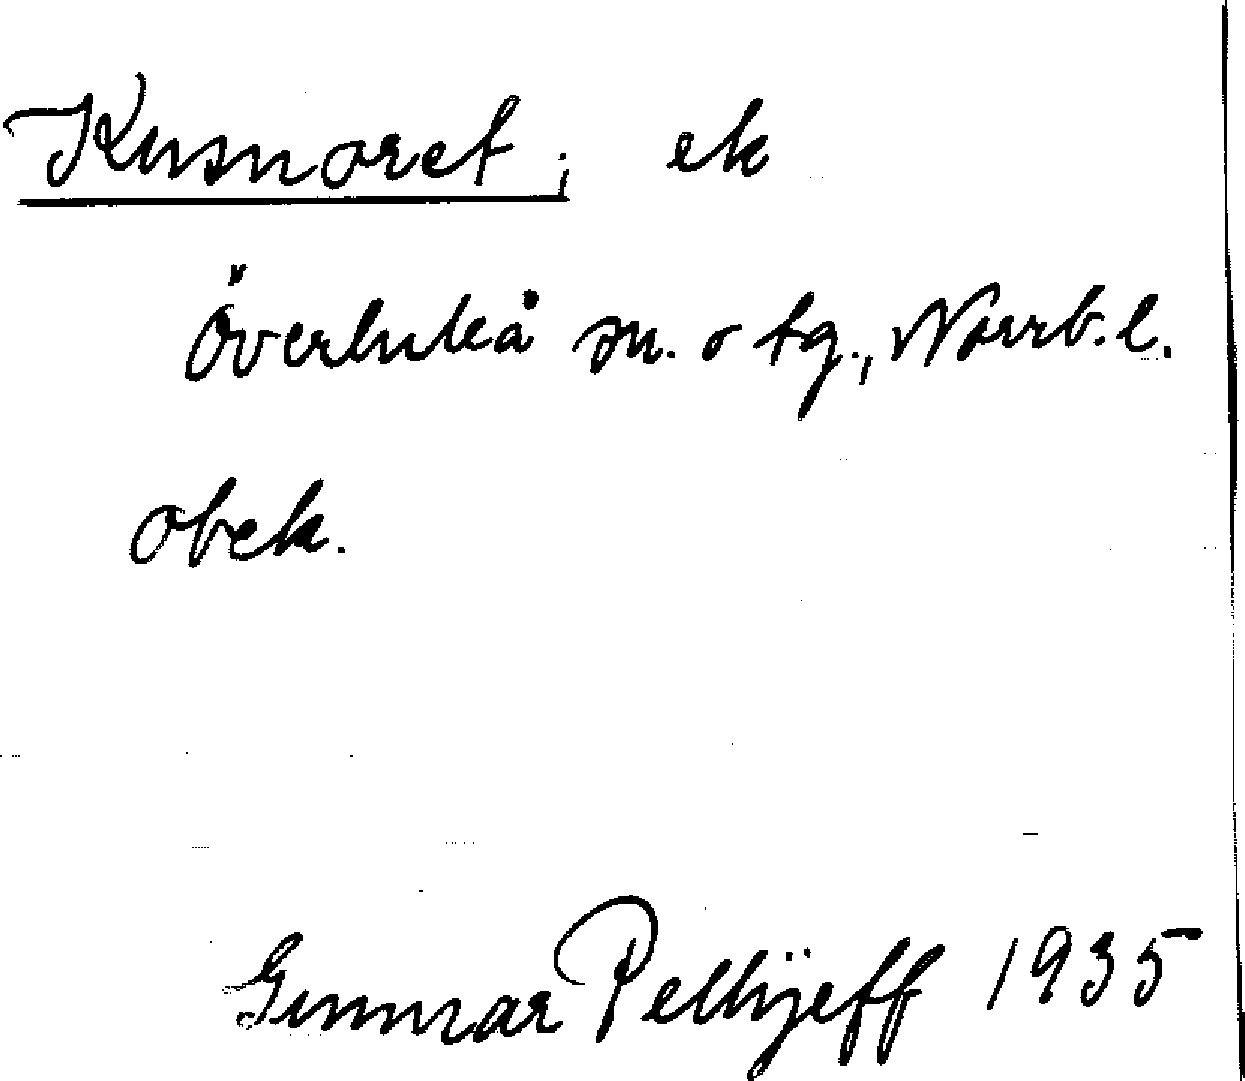 Kusnoret, ek
Överluleå sn. o tg., Norrb. l.
obek.
Gunnar Pellijeff 1935